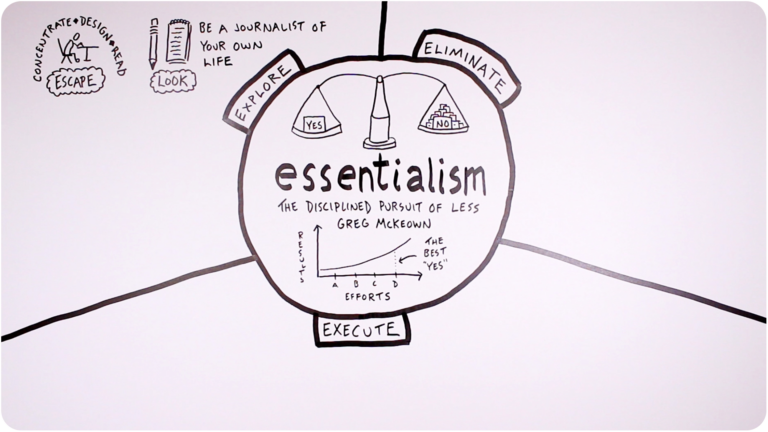 CONCENTRATE • DESIGN • READ
ESCAPE
LOOK
BE A JOURNALIST OF
YOUR OWN
LIFE
EXPLORE
ELIMINATE
YES
NO
essentialism
THE DISCIPLINED PURSUIT OF LESS
GREG McKEOWN
RESULTS
THE
BEST
"YES"
A B C D
EFFORTS
EXECUTE